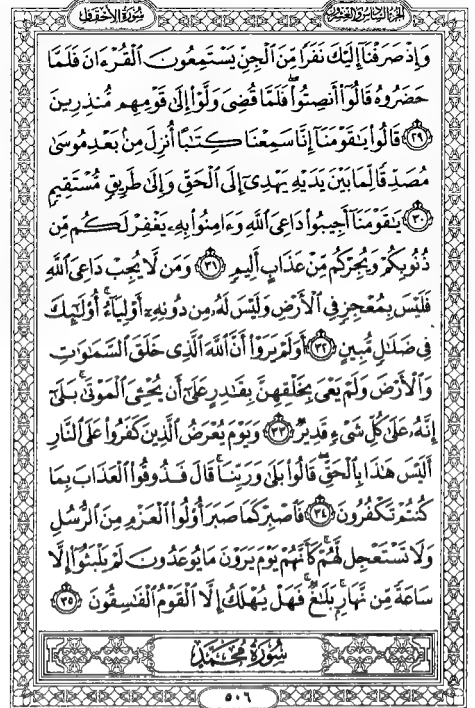 سُورَةُ الأَحْقَافِ
الجُزْءُ السَّادِسُ وَالعِشْرُونَ
وَإِذْ صَرَفْنَآ إِلَيْكَ نَفَرًا مِّنَ ٱلْجِنِّ يَسْتَمِعُونَ ٱلْقُرْءَانَ فَلَمَّا
حَضَرُوهُ قَالُوٓا۟ أَنصِتُوا۟ ۖ فَلَمَّا قُضِىَ وَلَّوْا۟ إِلَىٰ قَوْمِهِم مُّنذِرِينَ
﴿٢٩﴾ قَالُوا۟ يَٰقَوْمَنَآ إِنَّا سَمِعْنَا كِتَٰبًا أُنزِلَ مِنۢ بَعْدِ مُوسَىٰ
مُصَدِّقًا لِّمَا بَيْنَ يَدَيْهِ يَهْدِىٓ إِلَى ٱلْحَقِّ وَإِلَىٰ طَرِيقٍ مُّسْتَقِيمٍ
﴿٣٠﴾ يَٰقَوْمَنَآ أَجِيبُوا۟ دَاعِىَ ٱللَّهِ وَءَامِنُوا۟ بِهِۦ يَغْفِرْ لَكُم مِّن
ذُنُوبِكُمْ وَيُجِرْكُم مِّنْ عَذَابٍ أَلِيمٍ ﴿٣١﴾ وَمَن لَّا يُجِبْ دَاعِىَ ٱللَّهِ
فَلَيْسَ بِمُعْجِزٍ فِى ٱلْأَرْضِ وَلَيْسَ لَهُۥ مِن دُونِهِۦٓ أَوْلِيَآءُ ۚ أُو۟لَٰٓئِكَ
فِى ضَلَٰلٍ مُّبِينٍ ﴿٣٢﴾ أَوَلَمْ يَرَوْا۟ أَنَّ ٱللَّهَ ٱلَّذِى خَلَقَ ٱلسَّمَٰوَٰتِ
وَٱلْأَرْضَ وَلَمْ يَعْىَ بِخَلْقِهِنَّ بِقَٰدِرٍ عَلَىٰٓ أَن يُحْـِۧىَ ٱلْمَوْتَىٰ ۚ بَلَىٰٓ
إِنَّهُۥ عَلَىٰ كُلِّ شَىْءٍ قَدِيرٌ ﴿٣٣﴾ وَيَوْمَ يُعْرَضُ ٱلَّذِينَ كَفَرُوا۟ عَلَى ٱلنَّارِ
أَلَيْسَ هَٰذَا بِٱلْحَقِّ ۖ قَالُوا۟ بَلَىٰ وَرَبِّنَا ۚ قَالَ فَذُوقُوا۟ ٱلْعَذَابَ بِمَا
كُنتُمْ تَكْفُرُونَ ﴿٣٤﴾ فَٱصْبِرْ كَمَا صَبَرَ أُو۟لُوا۟ ٱلْعَزْمِ مِنَ ٱلرُّسُلِ
وَلَا تَسْتَعْجِل لَّهُمْ ۚ كَأَنَّهُمْ يَوْمَ يَرَوْنَ مَا يُوعَدُونَ لَمْ يَلْبَثُوٓا۟ إِلَّا
سَاعَةً مِّن نَّهَارٍۭ ۚ بَلَٰغٌ ۚ فَهَلْ يُهْلَكُ إِلَّا ٱلْقَوْمُ ٱلْفَٰسِقُونَ ﴿٣٥﴾
سُورَةُ مُحَمَّدٍ
٥٠٦